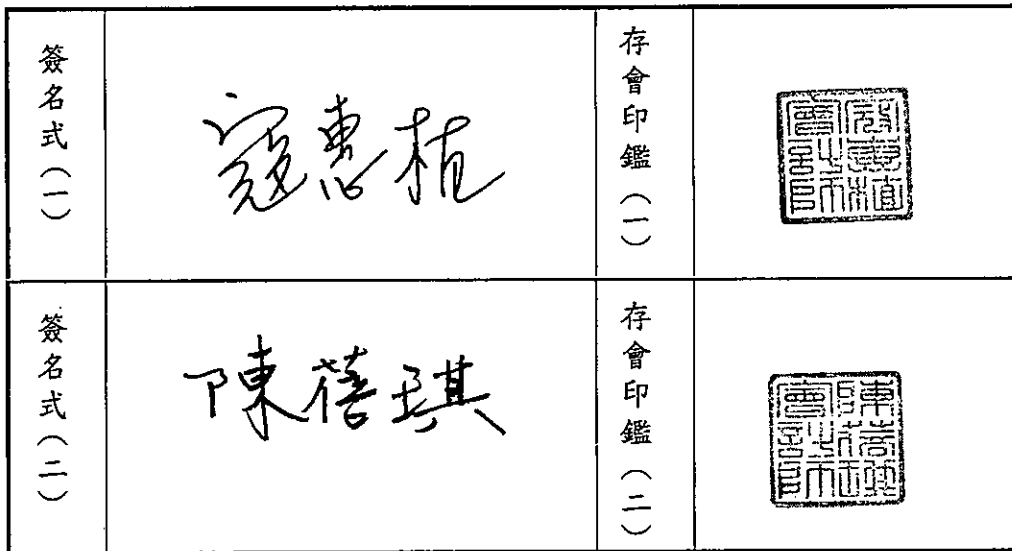 簽名式（一）
寇惠植
存會印鑑（一）
寇惠植會計師
簽名式（二）
陳蓓琪
存會印鑑（二）
陳蓓琪會計師